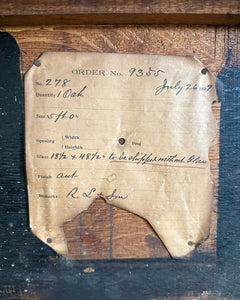 ORDER No. 9355
No. 278 July 26 1907
Quantity 1 Oak
Size 5 ft 0
Opening { Width
Heighth } Peg
Glass 18½ x 48½ - to be shipped without Glass
Finish Ant
Remarks: R. L. & Son